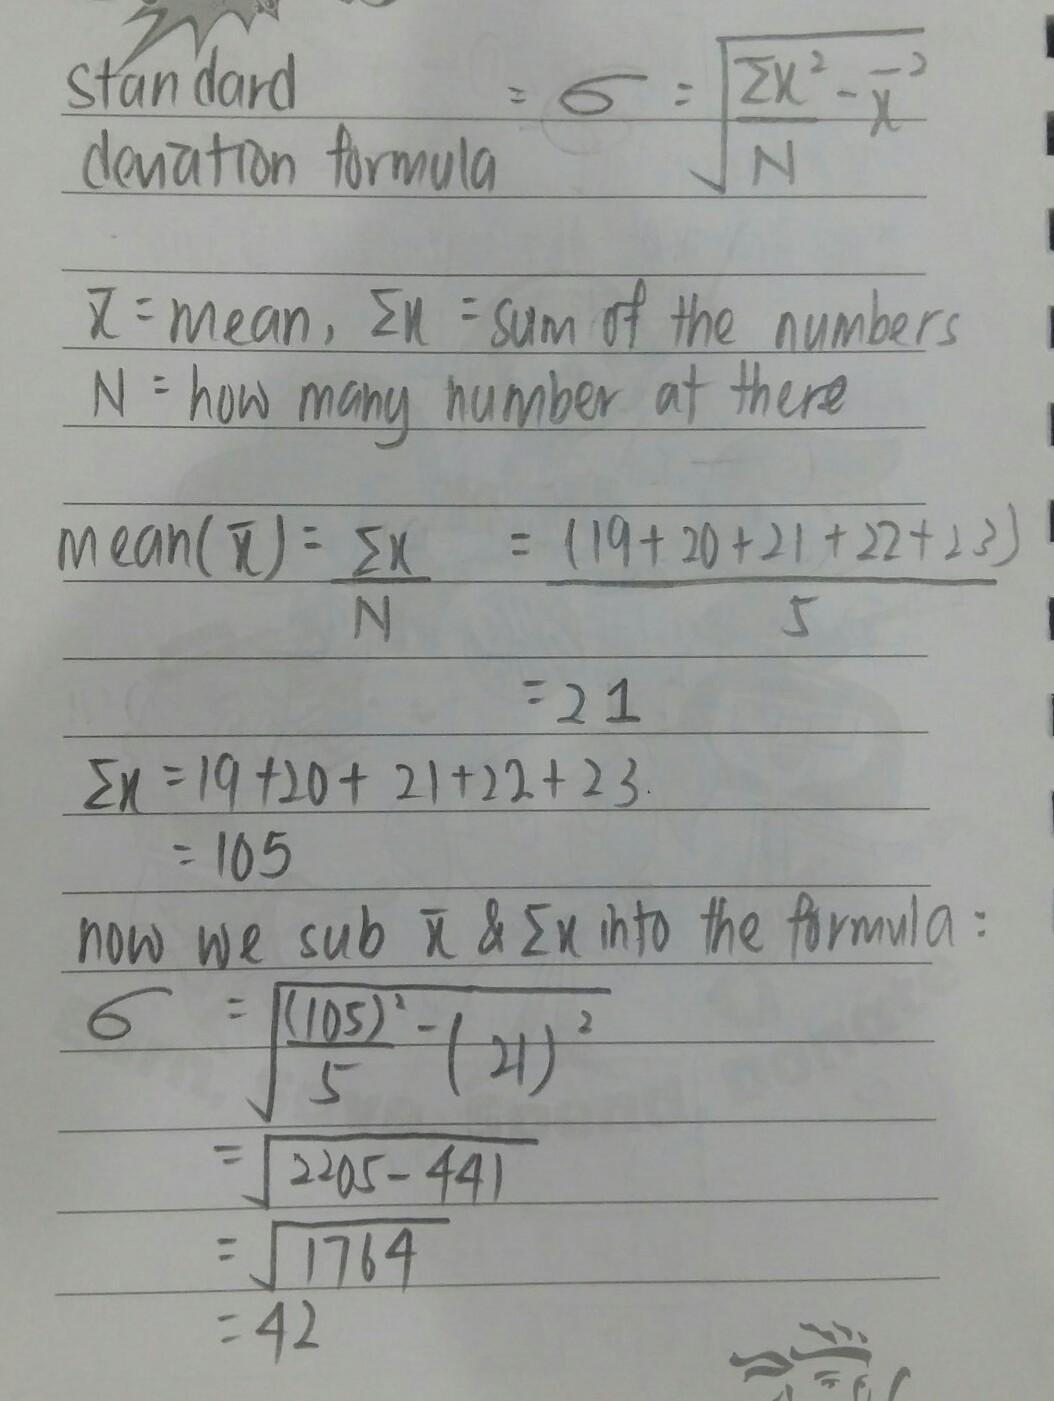 standard = σ = √(Σx²/N - x̄²)
deviation formula
x̄ = mean, Σx = sum of the numbers
N = how many number at there
mean(x̄) = Σx/N = (19+20+21+22+23)/5
= 21
Σx = 19+20+21+22+23.
= 105
now we sub x̄ & Σx into the formula:
σ = √((105)²/5 - (21)²)
= √(2205-441)
= √1764
= 42